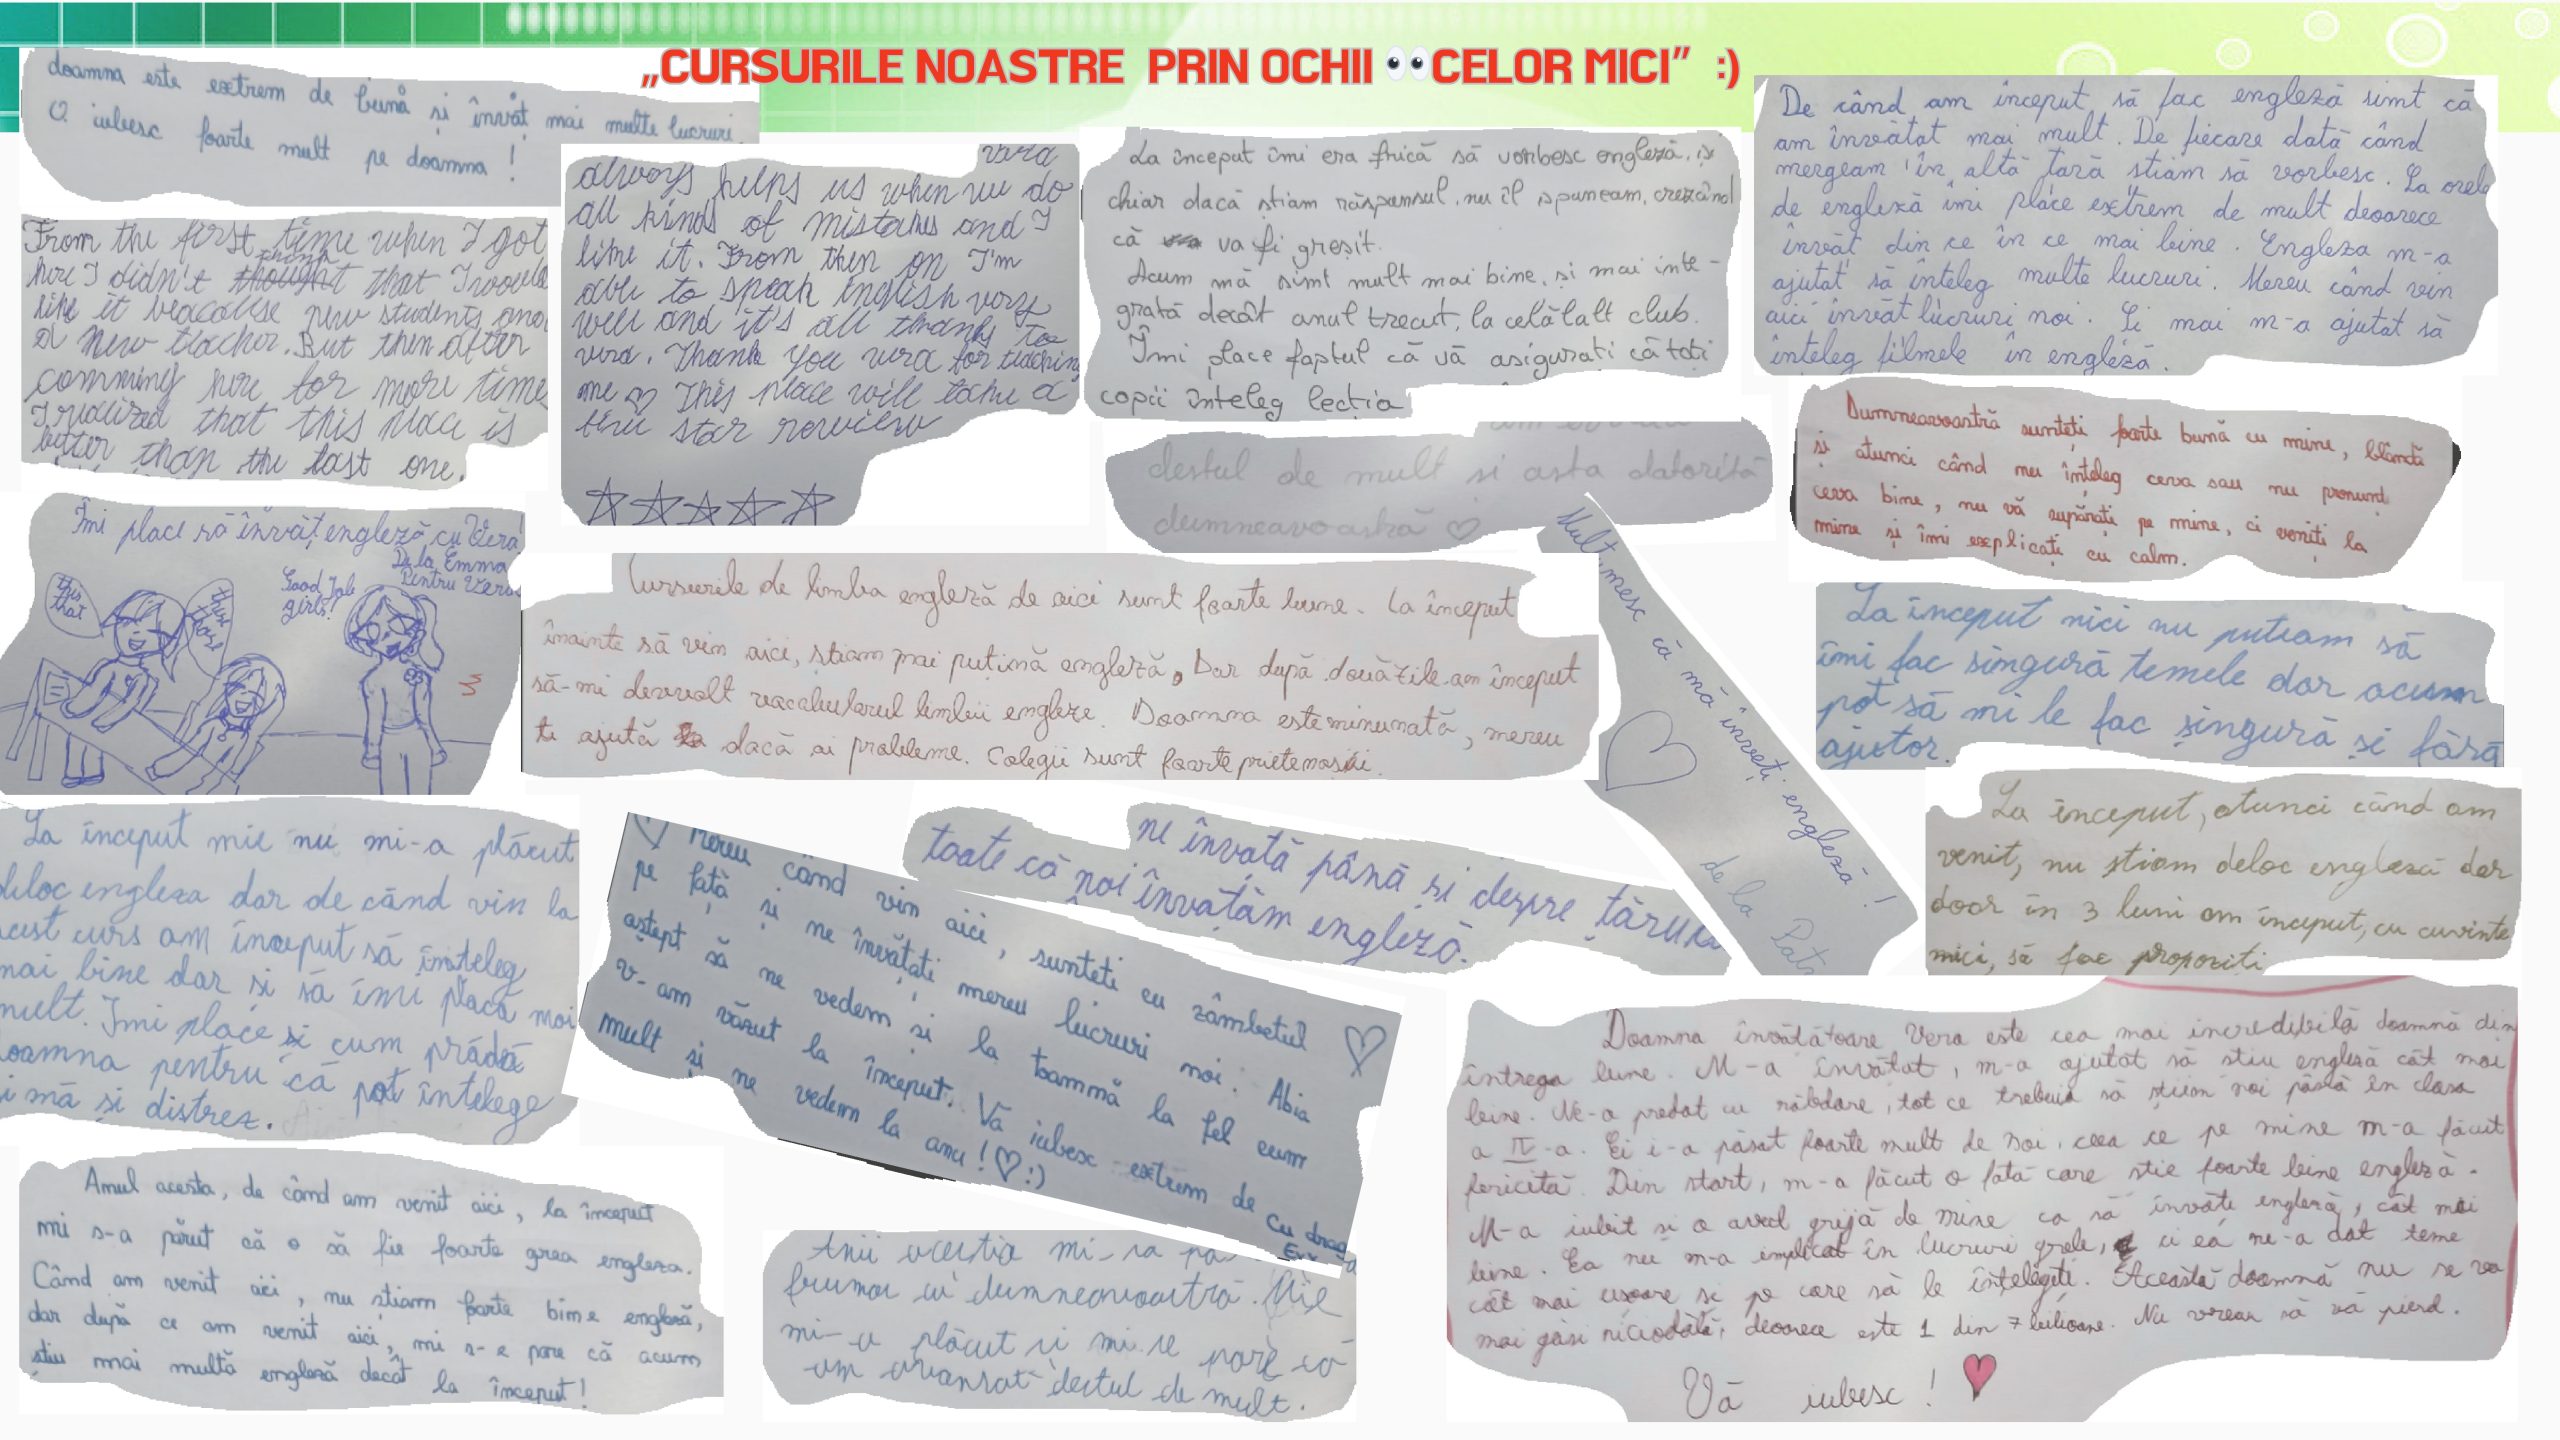 „CURSURILE NOASTRE PRIN OCHII CELOR MICI” :)
doamna este extrem de bună și învăt mai multe lucruri.
O iubesc foarte mult pe doamna !
From the first time when I got
here I didn't think that I would
like it beacause new students and
a new teacher. But then after
comming here for more time
I realized that this place is
better than the last one.
vera
always helps us when we do
all kinds of mistakes and I
like it. From then on I'm
able to speak English very
well and it's all thanks to
vera. Thank you vera for teaching
me ♡ This place will take a
five star review
☆☆☆☆☆
La început îmi era frică să vorbesc engleză, și
chiar dacă știam răspunsul, nu îl spuneam, crezând
că va fi greșit.
Acum mă simt mult mai bine, și mai inte-
grată decât anul trecut, la celălalt club.
Îmi place faptul că vă asigurați că toți
copii înteleg lecția
De când am început să fac engleză simt că
am învătat mai mult. De fiecare dată când
mergeam în altă țară stiam să vorbesc. La orele
de engleză îmi place extrem de mult deoarece
învăt din ce în ce mai bine. Engleza m-a
ajutat să înteleg multe lucruri. Mereu când vin
aici învăt lucruri noi. Și mai m-a ajutat să
înteleg filmele în engleză.
destul de mult și asta datorită
dumneavoastră ♡
Dumneavoastră sunteți foarte bună cu mine, blândă
și atunci când nu înțeleg ceva sau nu pronunț
ceva bine, nu vă supărați pe mine, ci veniți la
mine și îmi explicați cu calm.
Îmi place să învăț engleză cu Vera!
De la Emma
Pentru Vera
Good Job
girls!
this
that
Cursurile de limba engleză de aici sunt foarte bune. La început
înainte să vin aici, știam mai puțină engleză. Dar după două zile am început
să-mi dezvolt vocabularul limbii engleze. Doamna este minunată, mereu
te ajută dacă ai probleme. Colegii sunt foarte prietenoși.
Mulțumesc că mă înveți engleză !
de la
La început nici nu puteam să
îmi fac singură temele dar acum
pot să mi le fac singură și fără
ajutor.
La început mie nu mi-a plăcut
deloc engleza dar de când vin la
acest curs am început să înteleg
mai bine dar și să îmi placă mai
mult. Imi place și cum prădă
doamna pentru că pot întelege
și mă și distrez.
♡ Mereu când vin aici, sunteti cu zâmbetul
pe față și ne învățați mereu lucruri noi. Abia
aștept să ne vedem și la toamnă la fel cum
v-am văzut la început. Vă iubesc extrem de
mult și ne vedem la anu ! ♡ :)
Cu drag
ne învață până și despre
toate că noi învățăm engleză.
La început, atunci când am
venit, nu știam deloc engleză dar
doar în 3 luni am început, cu cuvinte
mici, să fac propoziti
Anul acesta, de când am venit aici, la început
mi s-a părut că o să fie foarte grea engleza.
Când am venit aici, nu știam foarte bine engleză,
dar după ce am venit aici, mi s-a pare că acum
știu mai multă engleză decât la început!
Anii acestia mi-
frumos cu dumneavoastră. Mie
mi-a plăcut și mi se pare că
am avansat destul de mult.
Doamna învătătoare Vera este cea mai incredibilă doamnă din
întrega lume. M-a învătat, m-a ajutat să stiu engleză cât mai
bine. Ne-a predat cu răbdare, tot ce trebuia să știm noi până în clasa
a IV-a. Ei i-a păsat foarte mult de noi, ceea ce pe mine m-a făcut
fericită. Din start, m-a făcut o fată care stie foarte bine engleză.
M-a iubit si a avut grijă de mine ca să învăte engleră, cât mai
bine. Ea nu m-a implicat în lucruri grele, ci ea ne-a dat teme
cât mai usoare si pe care să le întelegeti. Această doamnă nu se va
mai găsi niciodată, deoarece este 1 din 7 bilioane. Nu vreau să vă pierd.
Vă iubesc !